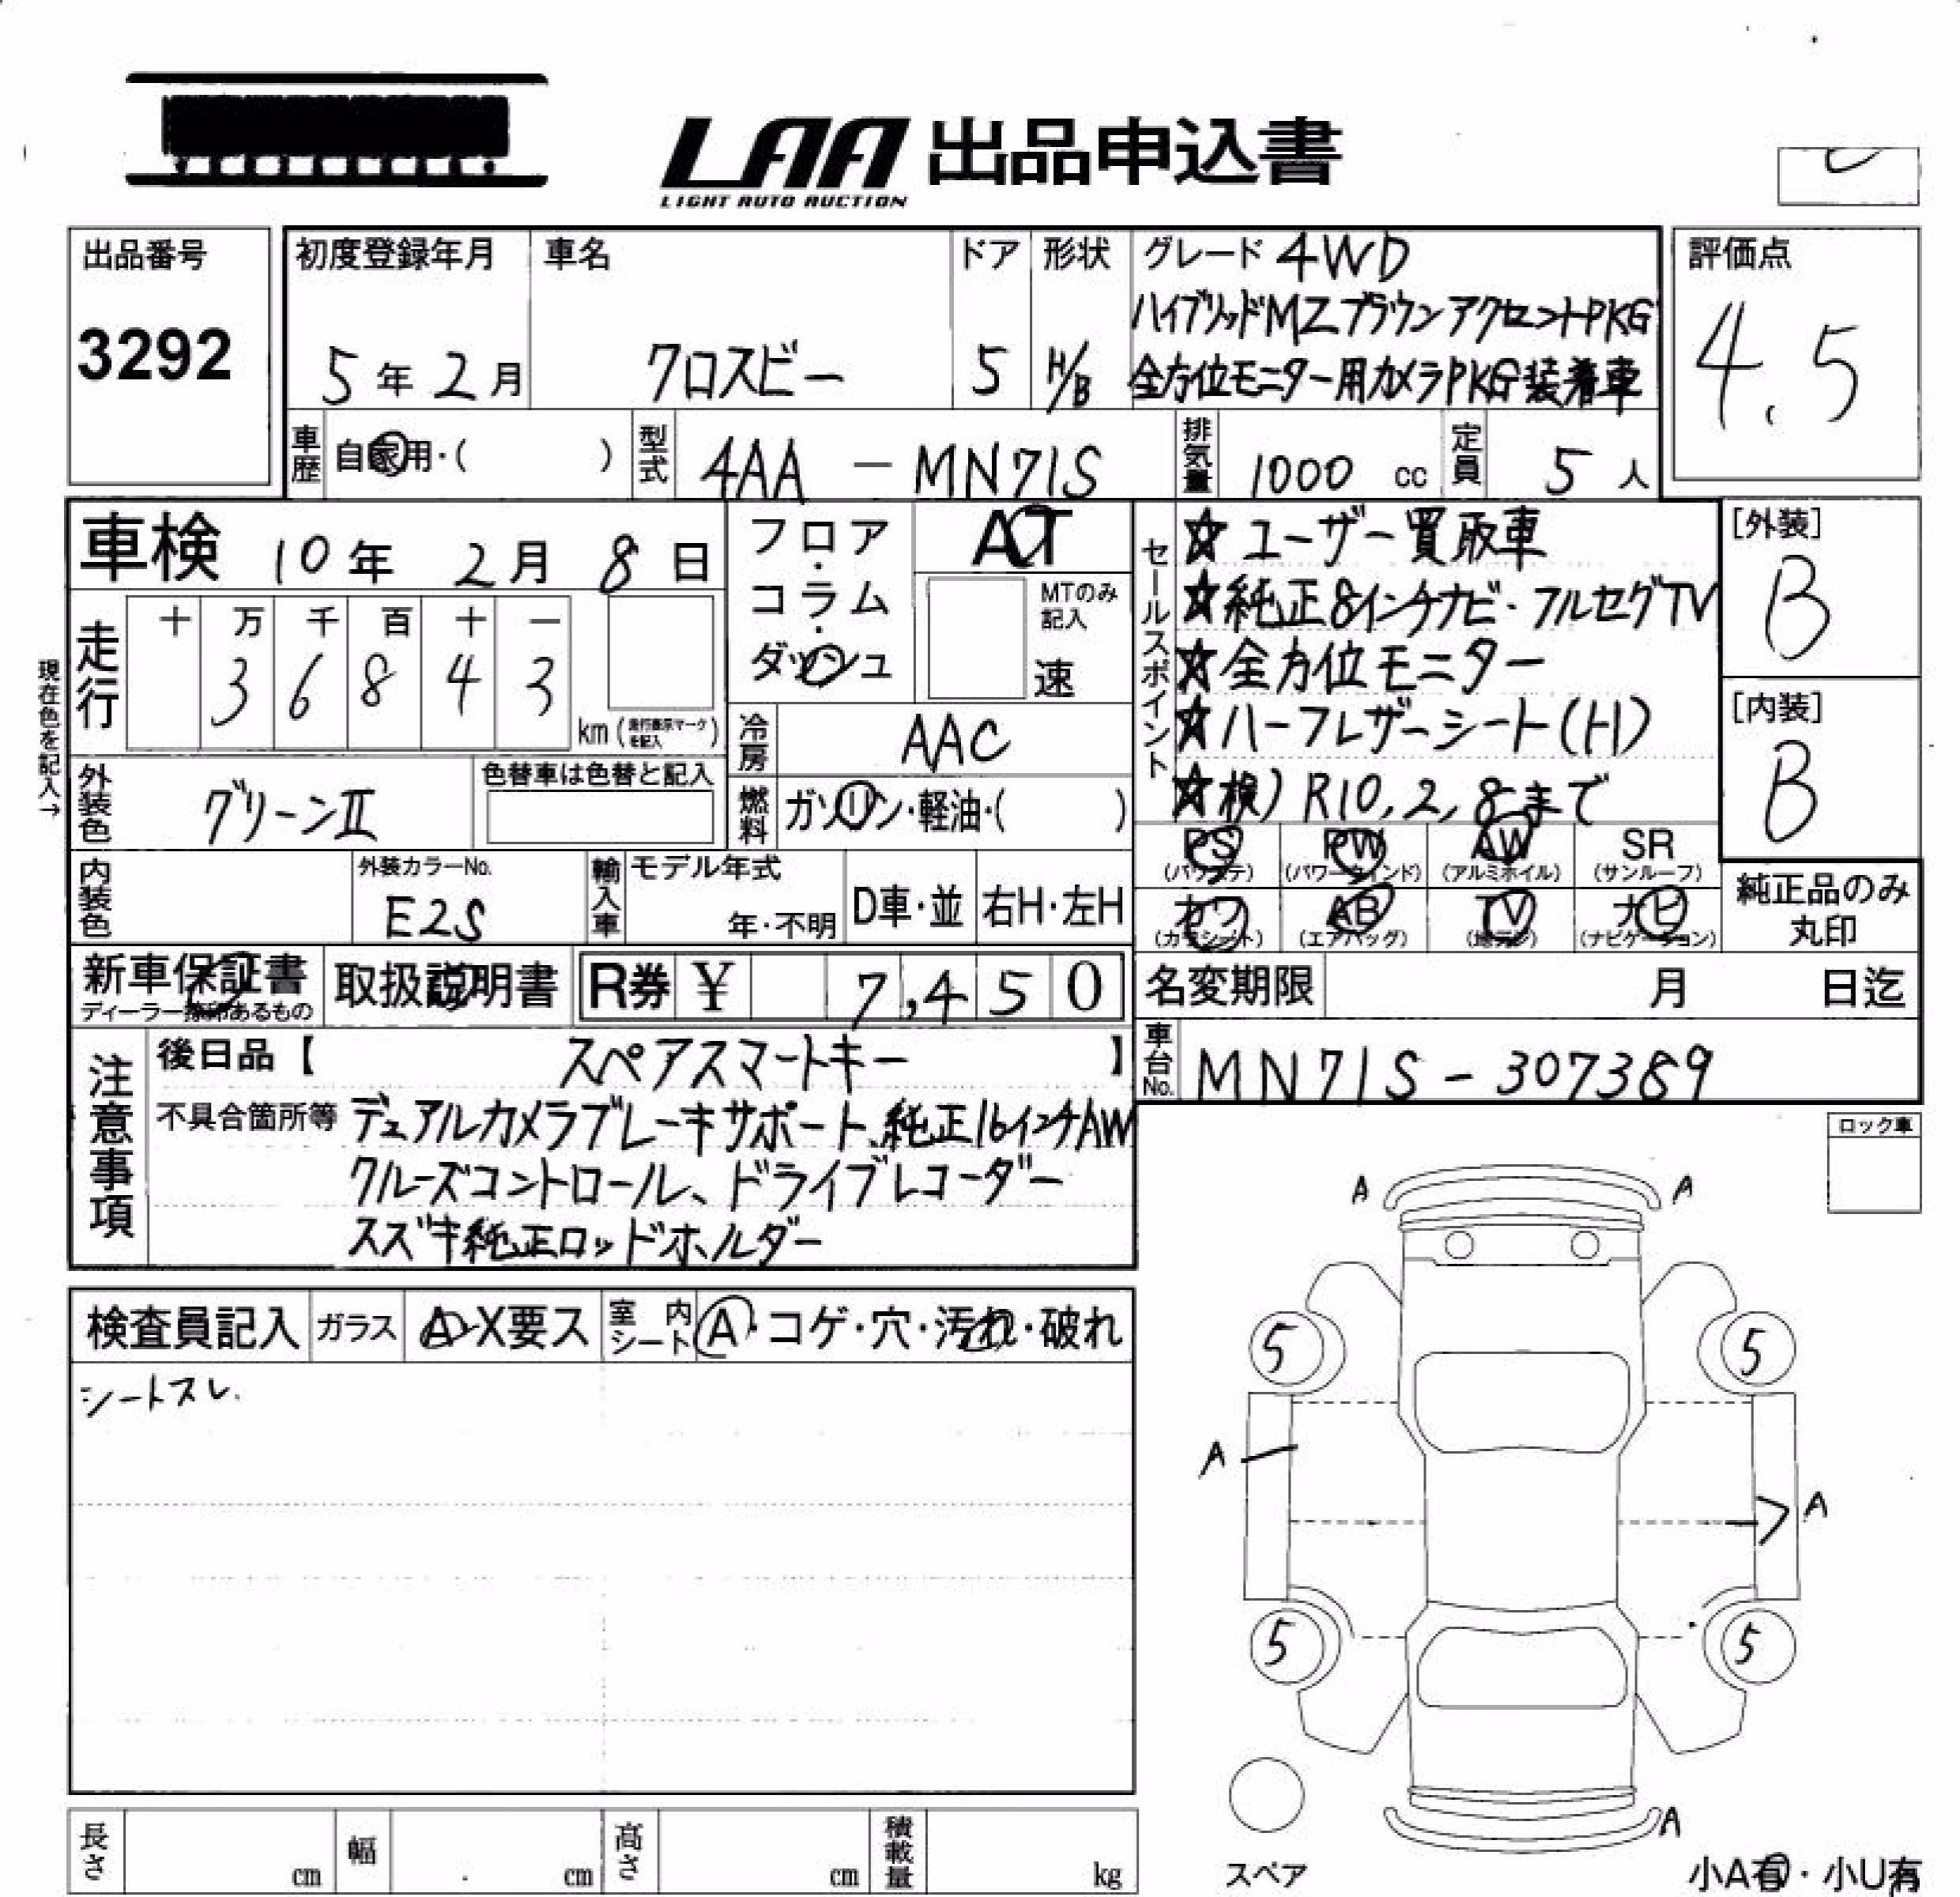 LAA 出品申込書
LIGHT AUTO AUCTION
出品番号
3292
初度登録年月
5年2月
車名
クロスビー
ドア
5
形状
H/B
グレード 4WD
ハイブリッドMZブラウンアクセントPKG
全方位モニター用カメラPKG装着車
評価点
4.5
車歴 自家用・( )
型式 4AA - MN71S
排気量 1000 cc
定員 5人
車検 10年 2月 8日
フロア・コラム・ダッシュ
AT
MTのみ記入
速
現在色を記入→
走行
十 万 千 百 十 一
3 6 8 4 3
km (走行表示マークを記入)
冷房 AAC
外装色 グリーンⅡ
色替車は色替と記入
燃料 ガソリン・軽油・( )
内装色
外装カラーNo.
E2S
輸入車
モデル年式
年・不明
D車・並
右H・左H
セールスポイント
☆ユーザー買取車
☆純正8インチナビ・フルセグTV
☆全方位モニター
☆ハーフレザーシート(H)
☆検)R10,2,8まで
[外装]
B
[内装]
B
PS (パワステ)
PW (パワーウインド)
AW (アルミホイル)
SR (サンルーフ)
カワ (カワシート)
AB (エアバッグ)
TV (地デジ)
ナビ (ナビゲーション)
純正品のみ
丸印
新車保証書
ディーラー捺印あるもの
取扱説明書
R券 ¥ 7,450
名変期限 月 日迄
車台No. MN71S-307389
注意事項
後日品【 スペアスマートキー 】
不具合箇所等 デュアルカメラブレーキサポート、純正16インチAW
クルーズコントロール、ドライブレコーダー
スズキ純正ロッドホルダー
ロック車
検査員記入
ガラス
A・X要ス
室内シート
A・コゲ・穴・汚れ・破れ
シートスレ.
A A
5 5
A
A
5 5
A
スペア
小A有・小U有
長さ cm
幅 cm
高さ cm
積載量 kg